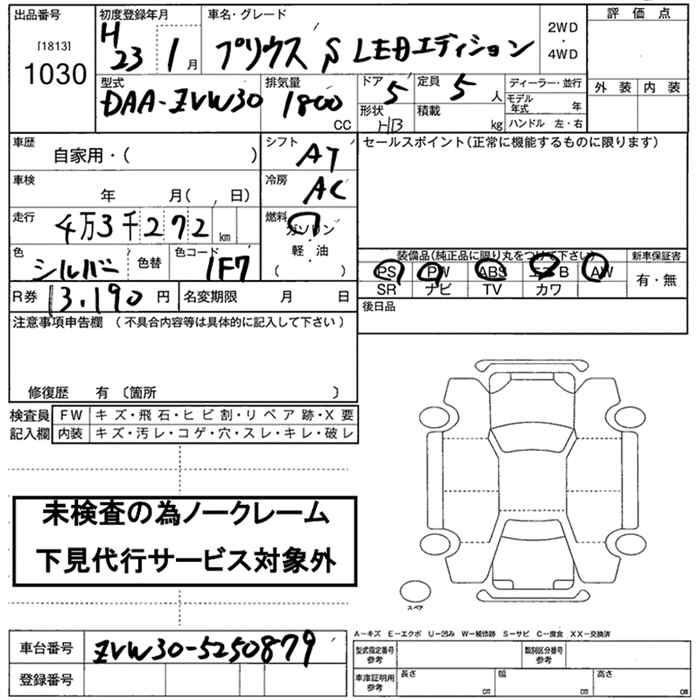 出品番号
[1813]
1030
初度登録年月
H 23 1 月
車名・グレード
プリウス S LEDエディション
2WD
・
4WD
評価点
外装 内装
型式
DAA-ZVW30
排気量
1800
CC
ドア 5
形状 HB
定員 5 人
積載 kg
ディーラー・並行
モデル年式 年
ハンドル 左・右
車歴
自家用・( )
シフト
AT
セールスポイント(正常に機能するものに限ります)
車検
年 月( , 日)
冷房
AC
走行
4万3千272 km
燃料
ガソリン
軽・油
( )
色
シルバー
色替
色コード
1F7
装備品(純正品に限り丸をつけて下さい)
PS PW ABS エアB AW
SR ナビ TV カワ
新車保証書
有・無
R券 13,190 円
名変期限 月 日
後日品
注意事項申告欄 (不具合内容等は具体的に記入して下さい)
修復歴 有 〔箇所 〕
検査員
記入欄
FW キズ・飛石・ヒビ割・リペア跡・X要
内装 キズ・汚レ・コゲ・穴・スレ・キレ・破レ
未検査の為ノークレーム
下見代行サービス対象外
スペア
車台番号 ZVW30-5250879
登録番号
A−キズ E−エクボ U−凹み W−補修跡 S−サビ C−腐食 XX−交換済
型式指定番号
参考
類別区分番号
参考
車庫証明用
参考
長さ cm
幅 cm
高さ cm